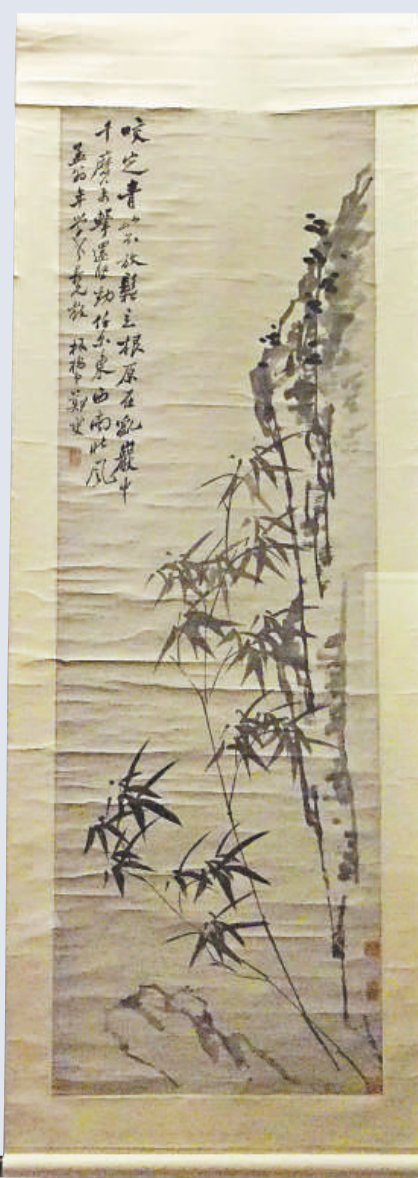 咬定青山不放鬆立根原在亂巖中
千磨万擊還堅勁任尔東西南北風
孟翁年學老 板橋鄭燮